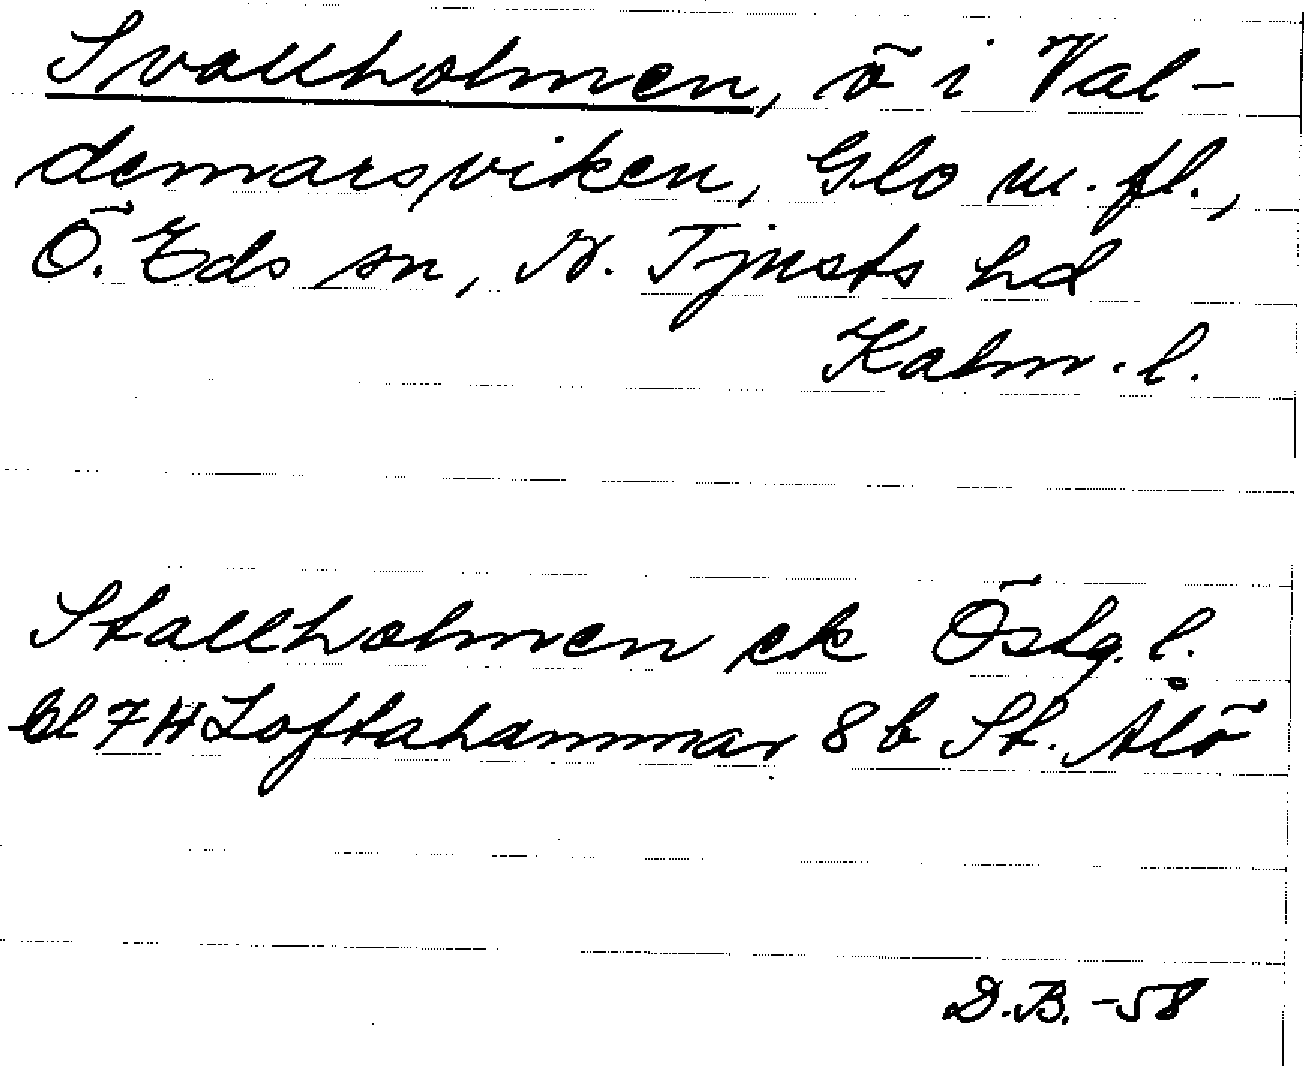 Svallholmen, ö i Val-
demarsviken, Glo m. fl.,
Ö. Eds sn, N. Tjusts hd
Kalm. l.
Stallholmen ek Östg. l.
bl 7H Loftahammar 8b St. Ålö
D.B. -58